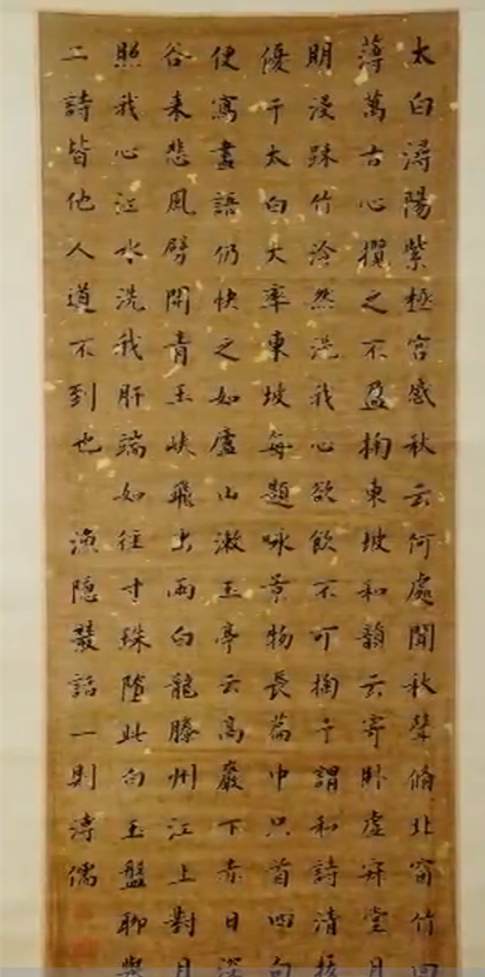 太白潯陽紫極宮感秋云何處聞秋聲脩北窗竹回
薄萬古心攬之不盈掬東坡和韻云寄卧虛寂堂月
明浸踈竹泠然洗我心欲飲不可掬予謂和詩清
優于太白大率東坡每題咏景物長篇中只首四句
便寫盡語仍快之如廬山漱玉亭云高巖下赤日深
谷來悲風劈開青玉峽飛出兩白龍滕州江上對月
照我心江水洗我肝端如徑寸珠墮此白玉盤聊
二詩皆他人道不到也 漁隱叢話一則溥儒